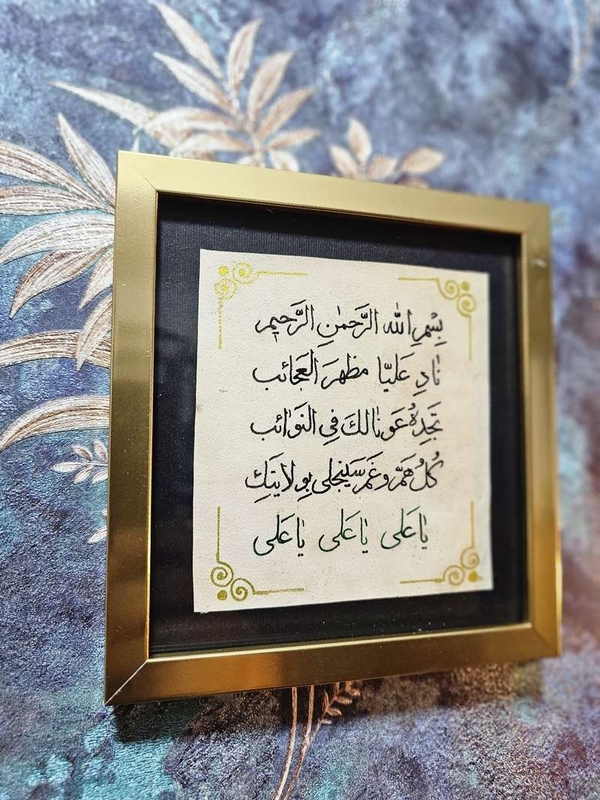 بِسْمِ اللهِ الرَّحمٰنِ الرَّحیمِ
نَادِ عَلیّا مظهرَ العَجَائب
تَجَدِهُ عَونا لكَ فِي النَوَائب
كُلُ هَمّ وغَم سَينجلی بِولايتكِ
یٰا عَلی یٰا عَلی یٰا عَلی